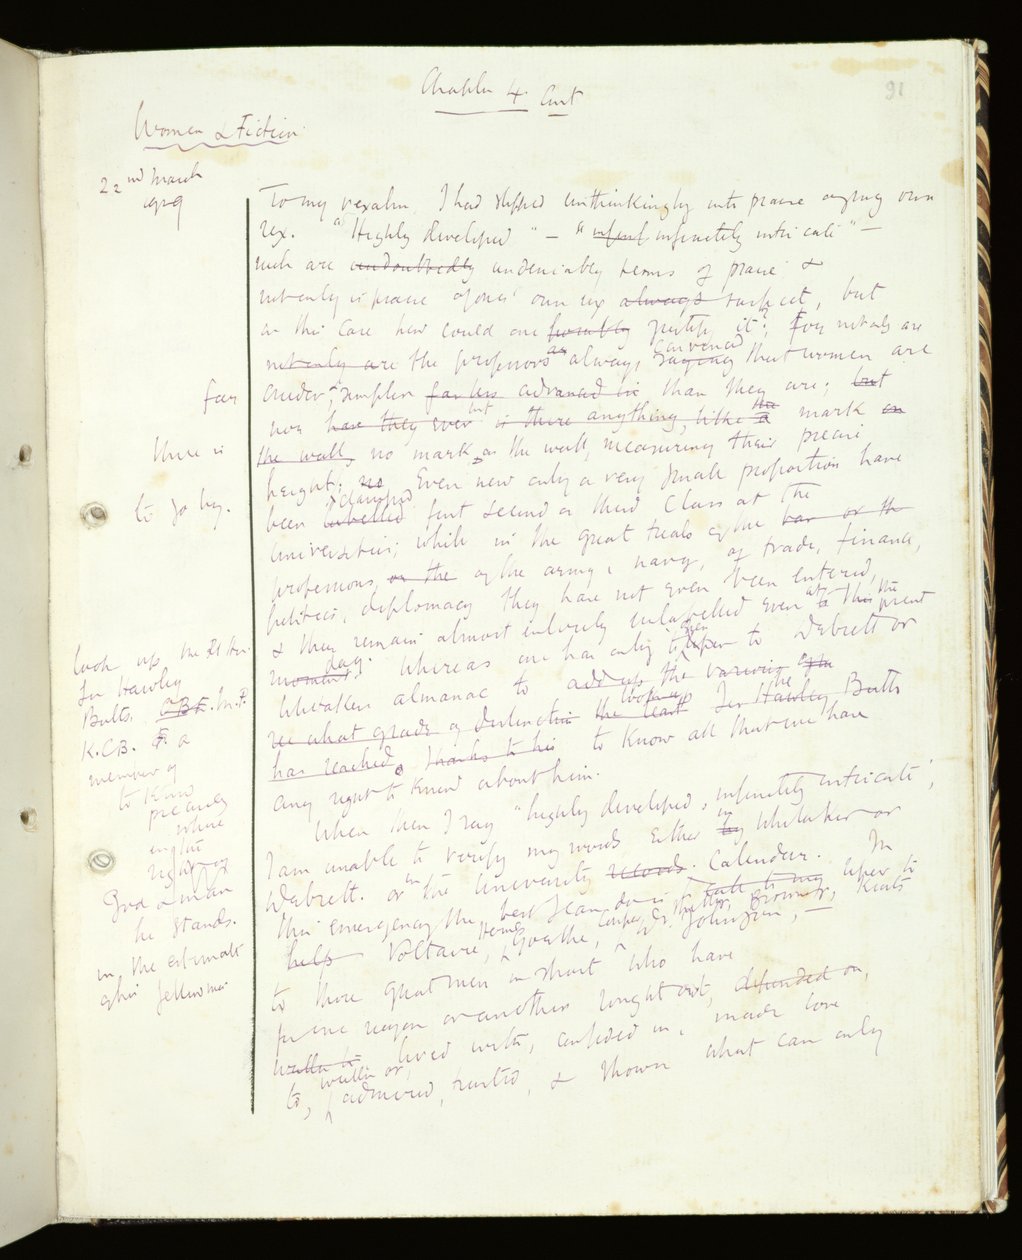 Chapter 4. Cont
91
Women & Fiction
22nd March
1929
To my vexation I had slipped unthinkingly into praise of my own
sex. "Highly developed" – "infinitely intricate" –
such are undoubtedly undeniably terms of praise &
not only is praise of ones' own sex always suspect, but
in this case how could one possibly justify it? For not only are
not only are the professors always saying convinced that women are
far
cruder, simpler far less advanced in than they are; but
nor have they ever but is there anything, like a the mark on
there is
the wall, no mark on the wall, measuring their precise
height; no Even now only a very small proportion have
to go by.
been labelled classified first second or third Class at the
Universities; while in the great trials of the bar or the
professions, or the of the army & navy, of trade, finance,
politics, diplomacy they have not even been entered,
& they remain almost entirely unlabelled even at this the present
moment. day. Whereas one has only to open to Debrett or
look up the Rt Hon.
Sir Hawley
Butts. M.P.
K.C.B. a
member of
to know
precisely
where
in the
right of
God a man
he stands.
in the estimate
of his fellow men
Whitakers almanac to add up the various
see what grade of distinction the least look up Sir Hawley Butts
has reached, thanks to his to know all that we have
any right to know about him.
When then I say "highly developed, infinitely intricate",
I am unable to verify my words either by in Whitaker or
Debrett. or in the University records. Calendar. In
this emergency the best I can do is to call to my
help Voltaire, Goethe, Cowper, Dr Johnson, Keats
to those great men in short who have
for one reason or another sought out, depended on,
written to lived with, confided in, made love
to, written or, admired, trusted, & shown what can only